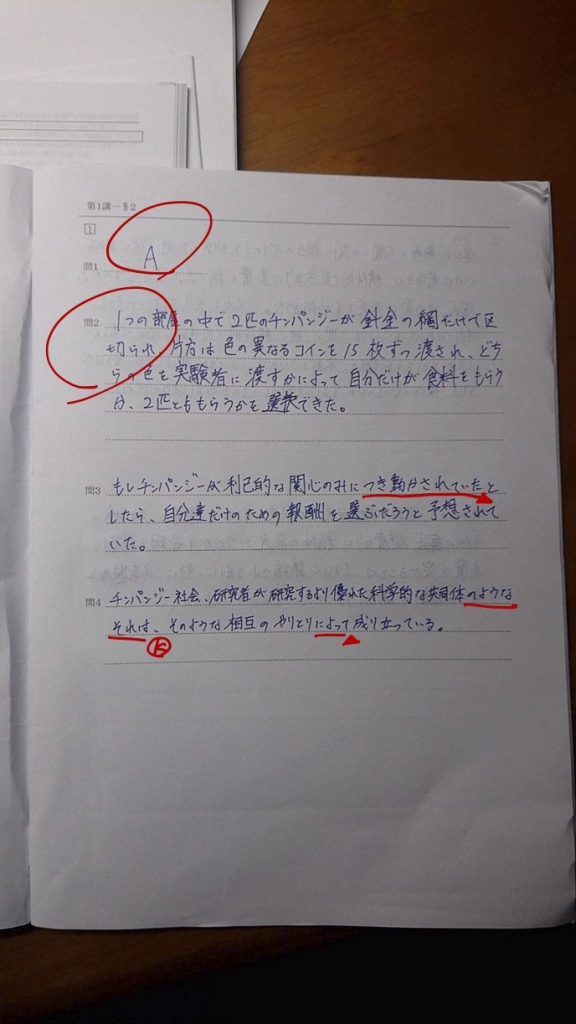 第1講—§2
1
問1 A
問2 1つの部屋の中で2匹のチンパンジーが針金の網だけで区
切られ、片方は色の異なるコインを15枚ずつ渡され、どち
らの色を実験者に渡すかによって自分だけが食料をもらう
か、2匹とももらうかを選択できた。
問3 もしチンパンジーが利己的な関心のみにつき動かされていたと
したら、自分達だけのための報酬を選ぶだろうと予想されて
いた。
問4 チンパンジー社会、研究者が研究するより優れた科学的な共同体のような
それは、そのような相互のやりとりによって成り立っている。